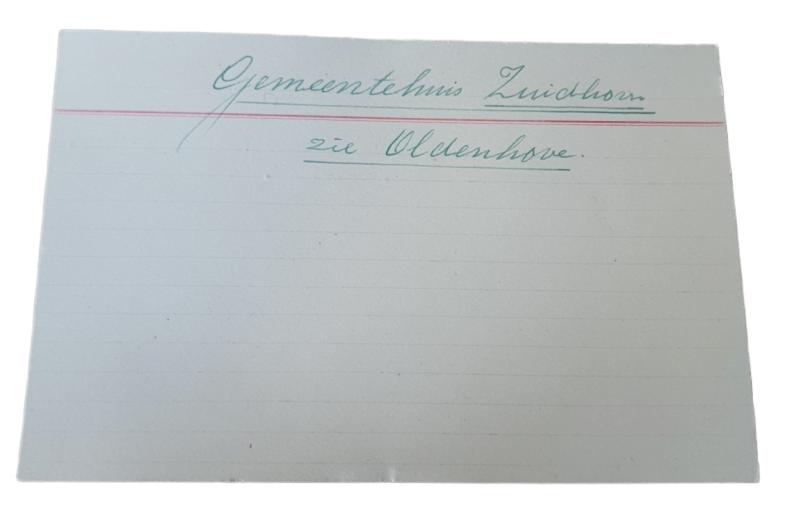 Gemeentehuis Zuidhorn
zie Oldenhove.